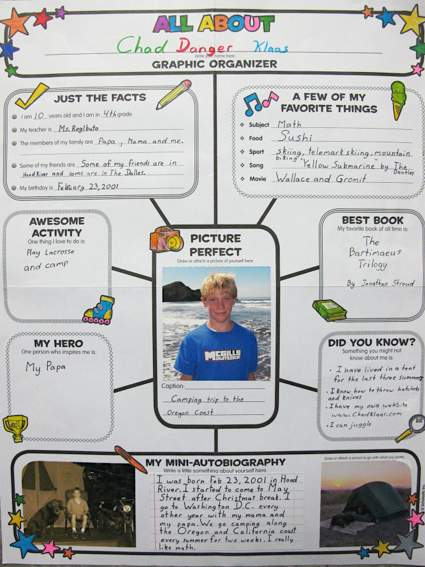 ALL ABOUT
Chad Danger Klaas
GRAPHIC ORGANIZER
JUST THE FACTS
I am 10 years old and I am in 4th grade.
My teacher is Ms. Reglbuto
The members of my family are Papa, Mama and me.
Some of my friends are Some of my friends are in
Hood River and some are in The Dalles.
My birthday is February 23, 2001
A FEW OF MY
FAVORITE THINGS
Subject Math
Food Sushi
Sport skiing, telemark skiing, mountain
biking
Song "Yellow Submarine" by The
Beatles
Movie Wallace and Gromit
AWESOME
ACTIVITY
One thing I love to do is:
Play Lacrosse
and camp
PICTURE
PERFECT
Draw or attach a picture of yourself here.
Caption:
Camping trip to the
Oregon Coast
BEST BOOK
My favorite book of all time is:
The
Bartimaeus
Trilogy
By Jonathan Stroud
MY HERO
One person who inspires me is:
My Papa
DID YOU KNOW?
Something you might not
know about me is:
• I have lived in a tent
for the last three summers
• I know how to throw hatchets
and knives
• I have my own website
www.ChadKlaas.com
• I can juggle
MY MINI-AUTOBIOGRAPHY
Write a little something about yourself here.
I was born Feb 23, 2001 in Hood
River. I started to come to May
Street after Christmas break. I
go to Washington D.C. every
other year with my mama and
my papa. We go camping along
the Oregon and California coast
every summer for two weeks. I really
like math.